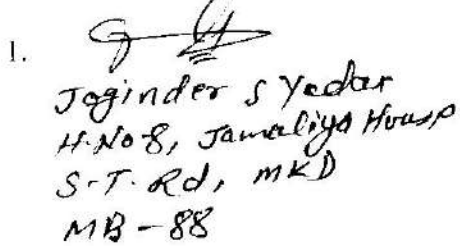 1.
Joginder S Yadav
H.No-8, Jamaliya House
S.T. Rd, MKD
MB-88